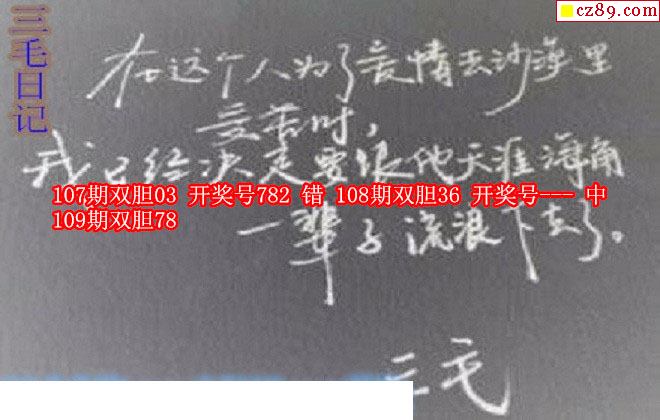 cz89.com
三毛日记
在这个人为了爱情去沙漠里
受苦时，
我已经决定要跟他天涯海角
107期双胆03 开奖号782 错 108期双胆36 开奖号--- 中
109期双胆78
一辈子流浪下去了。
三毛